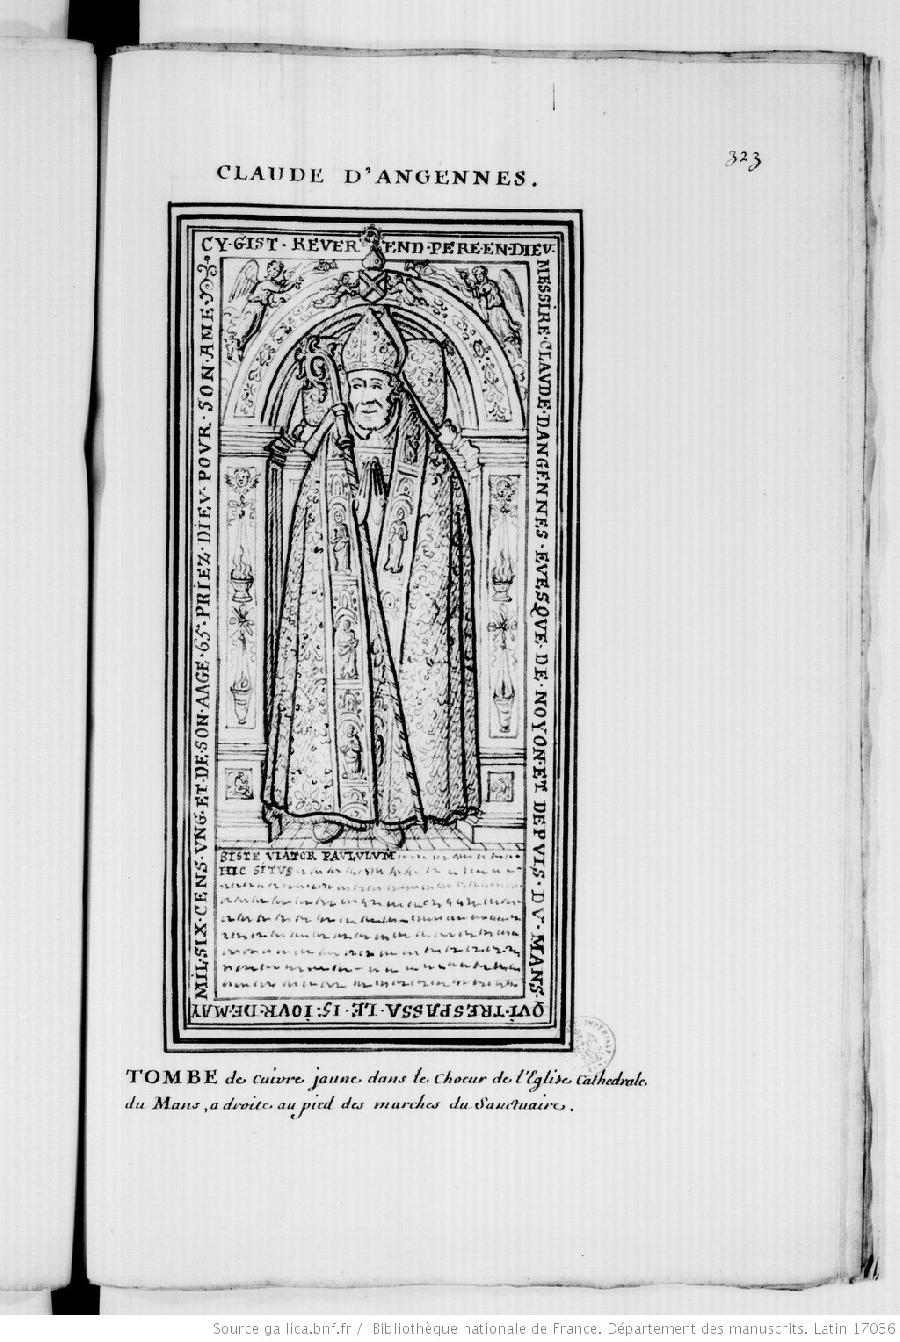 323
CLAUDE D'ANGENNES.
CY·GIST·REVEREND·PERE·EN·DIEV·
MESSIRE·CLAVDE·DANGENNES·EVESQVE·DE·NOYON·ET DEPVIS·DV·MANS·
QVI·TRESPASSA·LE·15·IOVR·DE·MAY
MIL·SIX·CENS·VNG·ET·DE·SON·AAGE·65·PRIEZ·DIEV·POVR·SON·AME
SISTE VIATOR PAULULUM
HIC SITUS
TOMBE de cuivre jaune dans le Choeur de l'Eglise Cathedrale
du Mans, a droite au pied des marches du Sanctuaire.
Source gallica.bnf.fr / Bibliothèque nationale de France. Département des manuscrits. Latin 17036